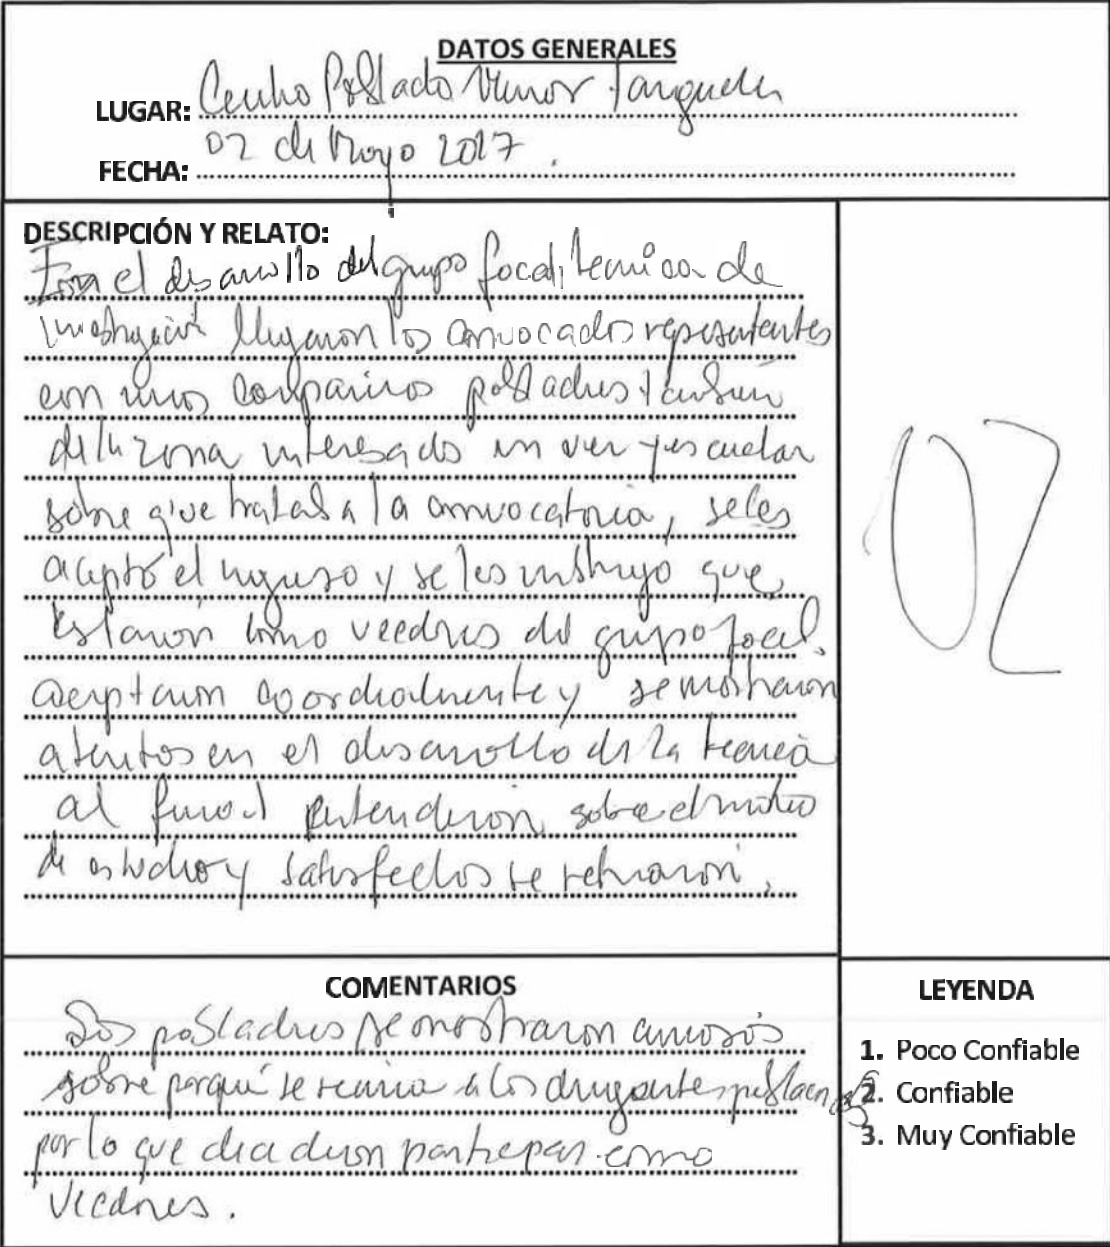 DATOS GENERALES
LUGAR: Centro Poblado Menor
FECHA: 02 de Mayo 2017.
DESCRIPCIÓN Y RELATO:
En el desarrollo del grupo focal, tecnica de
investigación llegaron los convocados representantes
con unos compañeros pobladores también
de la zona interesado en ver y escuchar
sobre que trataba la convocatoria, se les
aceptó el ingreso y se les instruyó que
estarón como veedores del grupo focal.
aceptaron coordialmente y se mostraron
atentos en el desarrollo de la tecnica
al final entendieron sobre el motivo
de estudio y satisfechos se retiraron.
02
COMENTARIOS
Los pobladores se mostraron curiosos
sobre porqué se reunia a los dirigentes
por lo que decidieron participar como
veedores.
LEYENDA
1. Poco Confiable
2. Confiable
3. Muy Confiable